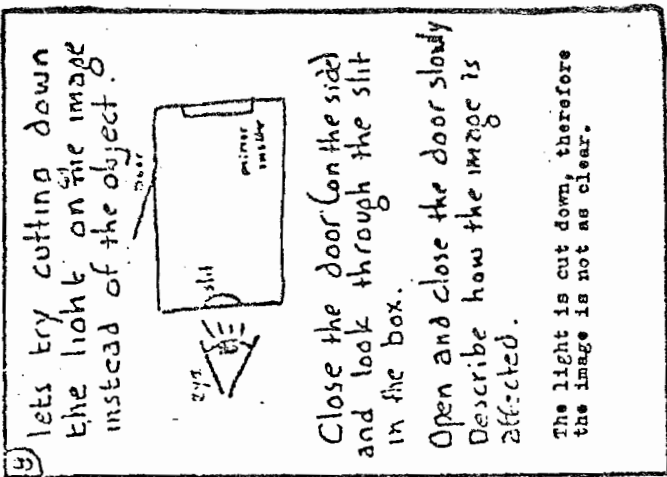 4
lets try cutting down
the light on the image
instead of the object.
door
slit
mirror
inside
eye
Close the door (on the side)
and look through the slit
in the box.
Open and close the door slowly
Describe how the image is
affected.
The light is cut down, therefore
the image is not as clear.